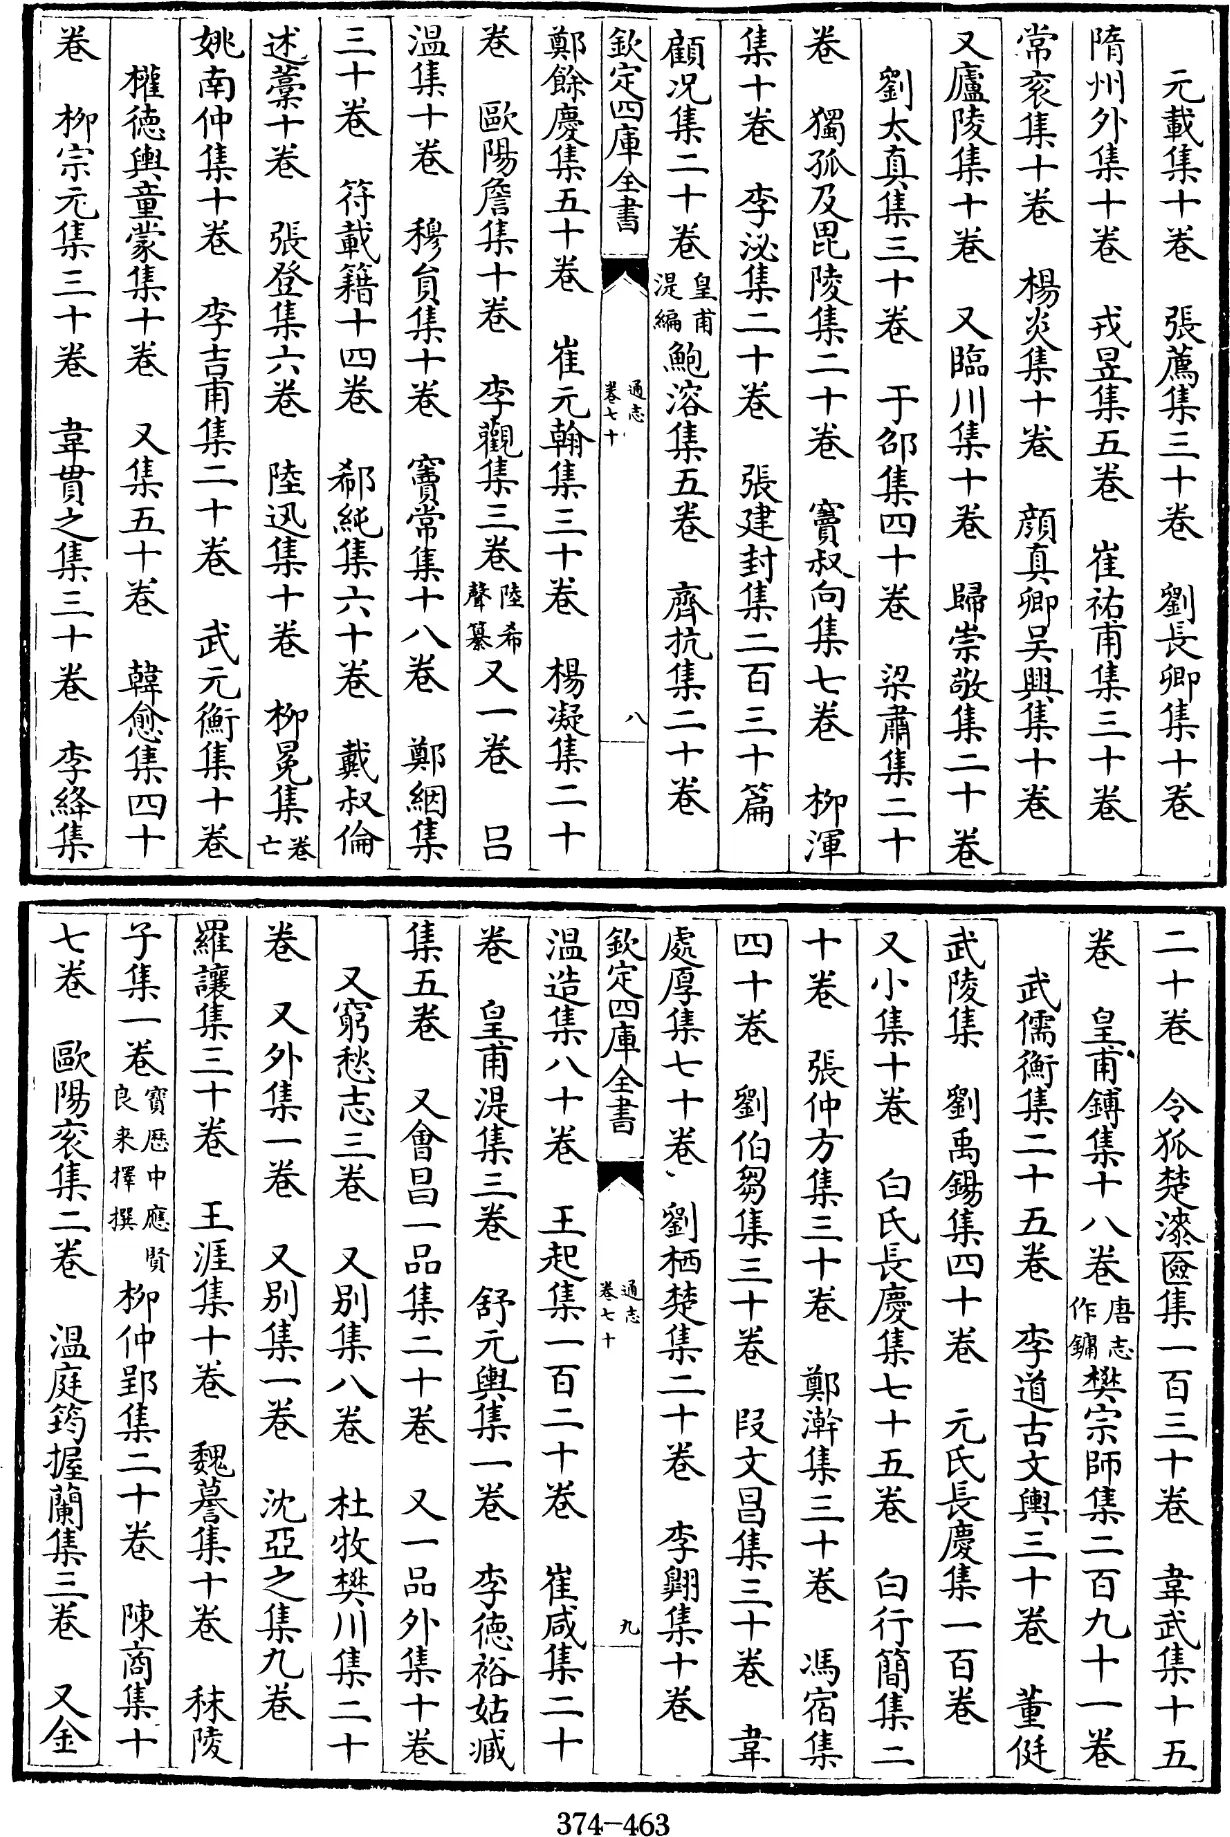 元載集十卷　張薦集三十卷　劉長卿集十卷
隋州外集十卷　戎昱集五卷　崔祐甫集三十卷
常衮集十卷　楊炎集十卷　顔真卿吴興集十卷
又廬陵集十卷　又臨川集十卷　歸崇敬集二十卷
劉太真集三十卷　于邵集四十卷　梁肅集二十
卷　獨孤及毘陵集二十卷　竇叔向集七卷　柳渾
集十卷　李泌集二十卷　張建封集二百三十篇
顧況集二十卷皇甫湜編鮑溶集五卷　齊抗集二十卷
欽定四庫全書　通志卷七十　八
鄭餘慶集五十卷　崔元翰集三十卷　楊凝集二十
卷　歐陽詹集十卷　李觀集三卷陸希聲纂又一卷　吕
温集十卷　穆員集十卷　竇常集十八卷　鄭絪集
三十卷　符載籍十四卷　郗純集六十卷　戴叔倫
述藁十卷　張登集六卷　陸迅集十卷　柳冕集卷亡
姚南仲集十卷　李吉甫集二十卷　武元衡集十卷
權德輿童蒙集十卷　又集五十卷　韓愈集四十
卷　柳宗元集三十卷　韋貫之集三十卷　李絳集
二十卷　令狐楚漆匳集一百三十卷　韋武集十五
卷　皇甫鏄集十八卷唐志作鏞樊宗師集二百九十一卷
武儒衡集二十五卷　李道古文輿三十卷　董侹
武陵集　劉禹錫集四十卷　元氏長慶集一百卷
又小集十卷　白氏長慶集七十五卷　白行簡集二
十卷　張仲方集三十卷　鄭澣集三十卷　馮宿集
四十卷　劉伯芻集三十卷　段文昌集三十卷　韋
處厚集七十卷　劉栖楚集二十卷　李翺集十卷
欽定四庫全書　通志卷七十　九
温造集八十卷　王起集一百二十卷　崔咸集二十
卷　皇甫湜集三卷　舒元輿集一卷　李德裕姑臧
集五卷　又會昌一品集二十卷　又一品外集十卷
又窮愁志三卷　又别集八卷　杜牧樊川集二十
卷　又外集一卷　又别集一卷　沈亞之集九卷
羅讓集三十卷　王涯集十卷　魏謩集十卷　秣陵
子集一卷寳厯中應賢良来擇撰柳仲郢集二十卷　陳商集十
七卷　歐陽衮集二卷　温庭筠握蘭集三卷　又金
374-463